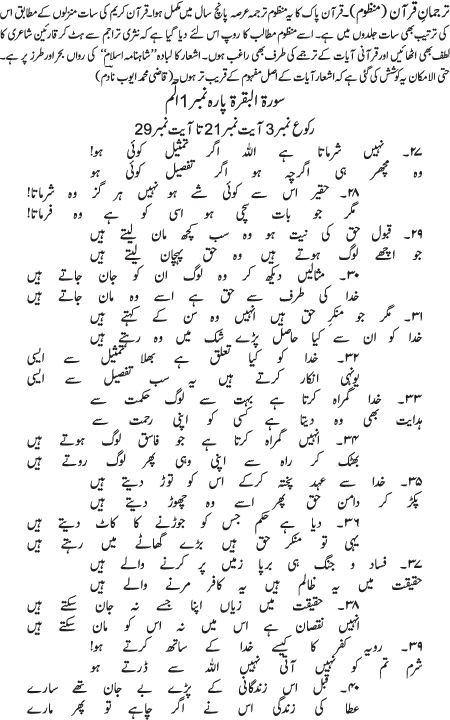 ترجمانِ قرآن (منظوم)۔ قرآنِ پاک کا یہ منظوم ترجمہ عرصہ پانچ سال میں مکمل ہوا۔ قرآن کریم کی سات منزلوں کے مطابق اس
کی ترتیب بھی سات جلدوں میں ہے۔ اسے منظوم مطالب کا روپ اس لئے دیا گیا ہے کہ نثری تراجم سے ہٹ کر قارئین شاعری کا
لطف بھی اٹھائیں اور قرآنی آیات کے ترجمے کی طرف بھی راغب ہوں۔ اشعار کا لبادہ ”شاہنامہ اسلام“ کی رواں بحر اور طرز پر ہے۔
حتی الامکان یہ کوشش کی گئی ہے کہ اشعار آیات کے اصل مفہوم کے قریب تر ہوں (قاضی محمد ایوب نادم)
سورۃ البقرۃ پارہ نمبر 1 الٓمّ
رکوع نمبر 3 آیت نمبر 21 تا آیت نمبر 29
۲۷۔ نہیں شرماتا ہے اللہ اگر تمثیل کوئی ہو!
وہ مچھر ہی اگرچہ ہو اگر تفصیل کوئی ہو
۲۸۔ حقیر اس سے کوئی شے ہو نہیں ہر گز وہ شرماتا!
مگر جو بات سچی ہو اسی کو ہے وہ فرماتا!
۲۹۔ قبول حق کی نیت ہو وہ سب کچھ مان لیتے ہیں
جو اچھے لوگ ہوتے ہیں وہ حق پہچان لیتے ہیں
۳۰۔ مثالیں دیکھ کر وہ لوگ ان کو جان جاتے ہیں
خدا کی طرف سے حق ہے اسے وہ مان جاتے ہیں
۳۱۔ مگر جو منکرِ حق ہیں انہیں وہ سن کے کہتے ہیں
خدا کو ان سے کیا حاصل پڑے شک میں وہ رہتے ہیں
۳۲۔ خدا کو کیا تعلق ہے بھلا تمثیل سے ایسی
یونہی انکار کرتے ہیں یہ سب تفصیل سے ایسی
۳۳۔ خدا گمراہ کرتا ہے بہت سے لوگ حکمت سے
ہدایت بھی وہ دیتا ہے کسی کو اپنی رحمت سے
۳۴۔ انہیں گمراہ کرتا ہے جو فاسق لوگ ہوتے ہیں
بھٹک کر راہ سے اپنی وہی پھر لوگ روتے ہیں
۳۵۔ خدا سے عہد پختہ کرکے اس کو توڑ دیتے ہیں
پکڑ کر دامن حق پھر اسے وہ چھوڑ دیتے ہیں
۳۶۔ دیا ہے حکم جس کو جوڑنے کا کاٹ دیتے ہیں
یہی تو منکرِ حق ہیں بڑے گھاٹے میں رہتے ہیں
۳۷۔ فساد و جنگ ہی برپا زمیں پر کرنے والے ہیں
حقیقت میں یہ ظالم ہیں یہ کافر مرنے والے ہیں
۳۸۔ حقیقت میں زیاں اپنا جسے نہ جان سکتے ہیں
انہیں نقصان ہے اس میں نہ اس کو مان سکتے ہیں
۳۹۔ رویہ کفر کا کیسے خدا کے ساتھ کرتے ہو!
شرم تم کو نہیں آتی نہیں اللہ سے ڈرتے ہو
۴۰۔ قبل اس زندگانی کے پڑے بے جان تھے سارے
عطا کی زندگی اس نے اگر چاہے تو پھر مارے